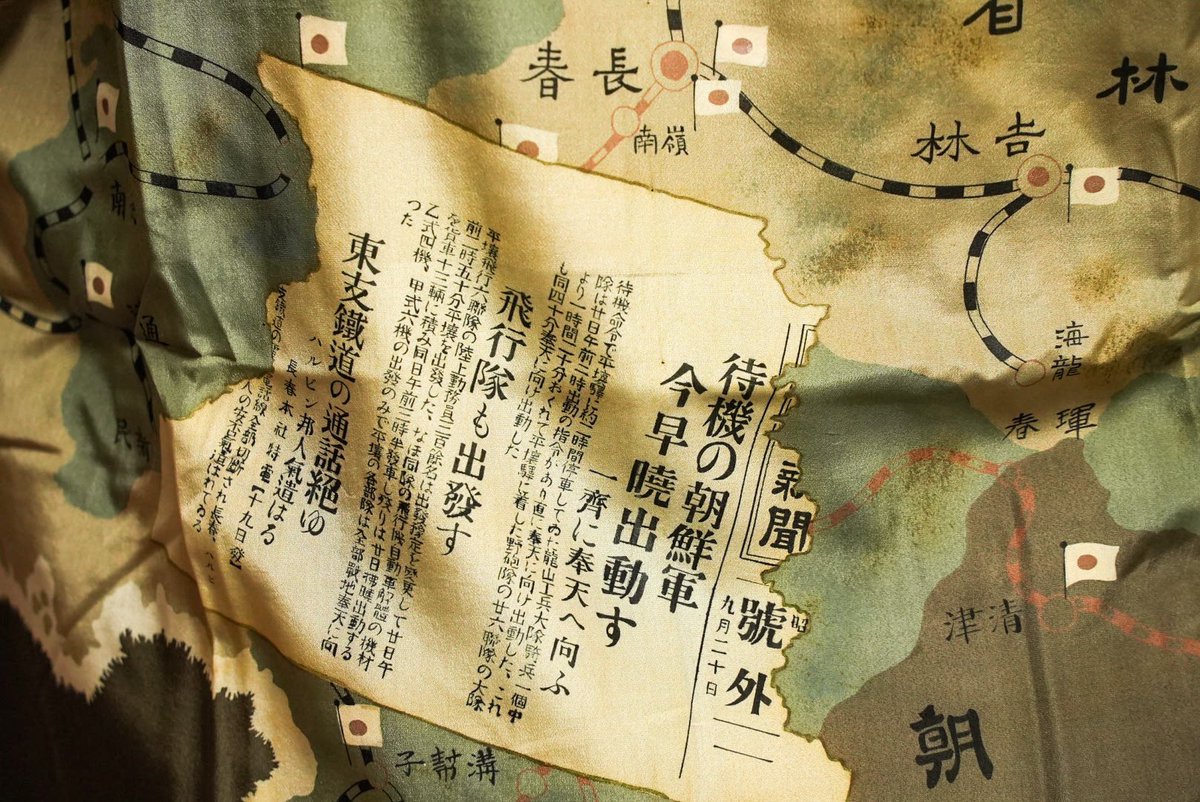 省
林
長春
南嶺
吉林
海龍
琿春
清津
朝
聞
號外
昭
九月二十日
待機の朝鮮軍
今早曉出動す
一齊に奉天へ向ふ
待機命令で平壤驛に約二時間停車してゐた龍山工兵大隊騎兵一個中
隊は廿日午前一時出動の指令があり直に奉天に向け出動した、これ
より一時間二十分おくれて平壤驛に着した野砲隊の廿六聯隊の大隊
も同四十分奉天に向け出動した
飛行隊も出發す
平壤飛行六聯隊の陸上勤務員二百除名は出發豫定を變更して廿日午
前一時五十分平壤を出發した、なほ同隊の飛行機自動車解體の機材
を貨車十三輛に積み同日午前二時半發車し殘りは廿日拂曉出動する
乙式四機、甲式六機の出發のみで平壤の各部隊は全部戰地奉天に向
つた
東支鐵道の通話絶ゆ
ハルビン邦人氣遣はる
長春本社特電【十九日發】
電話線全部切断され長春、ハルビ
人の安否氣遣はれてゐる
南
通
新民
溝幇子